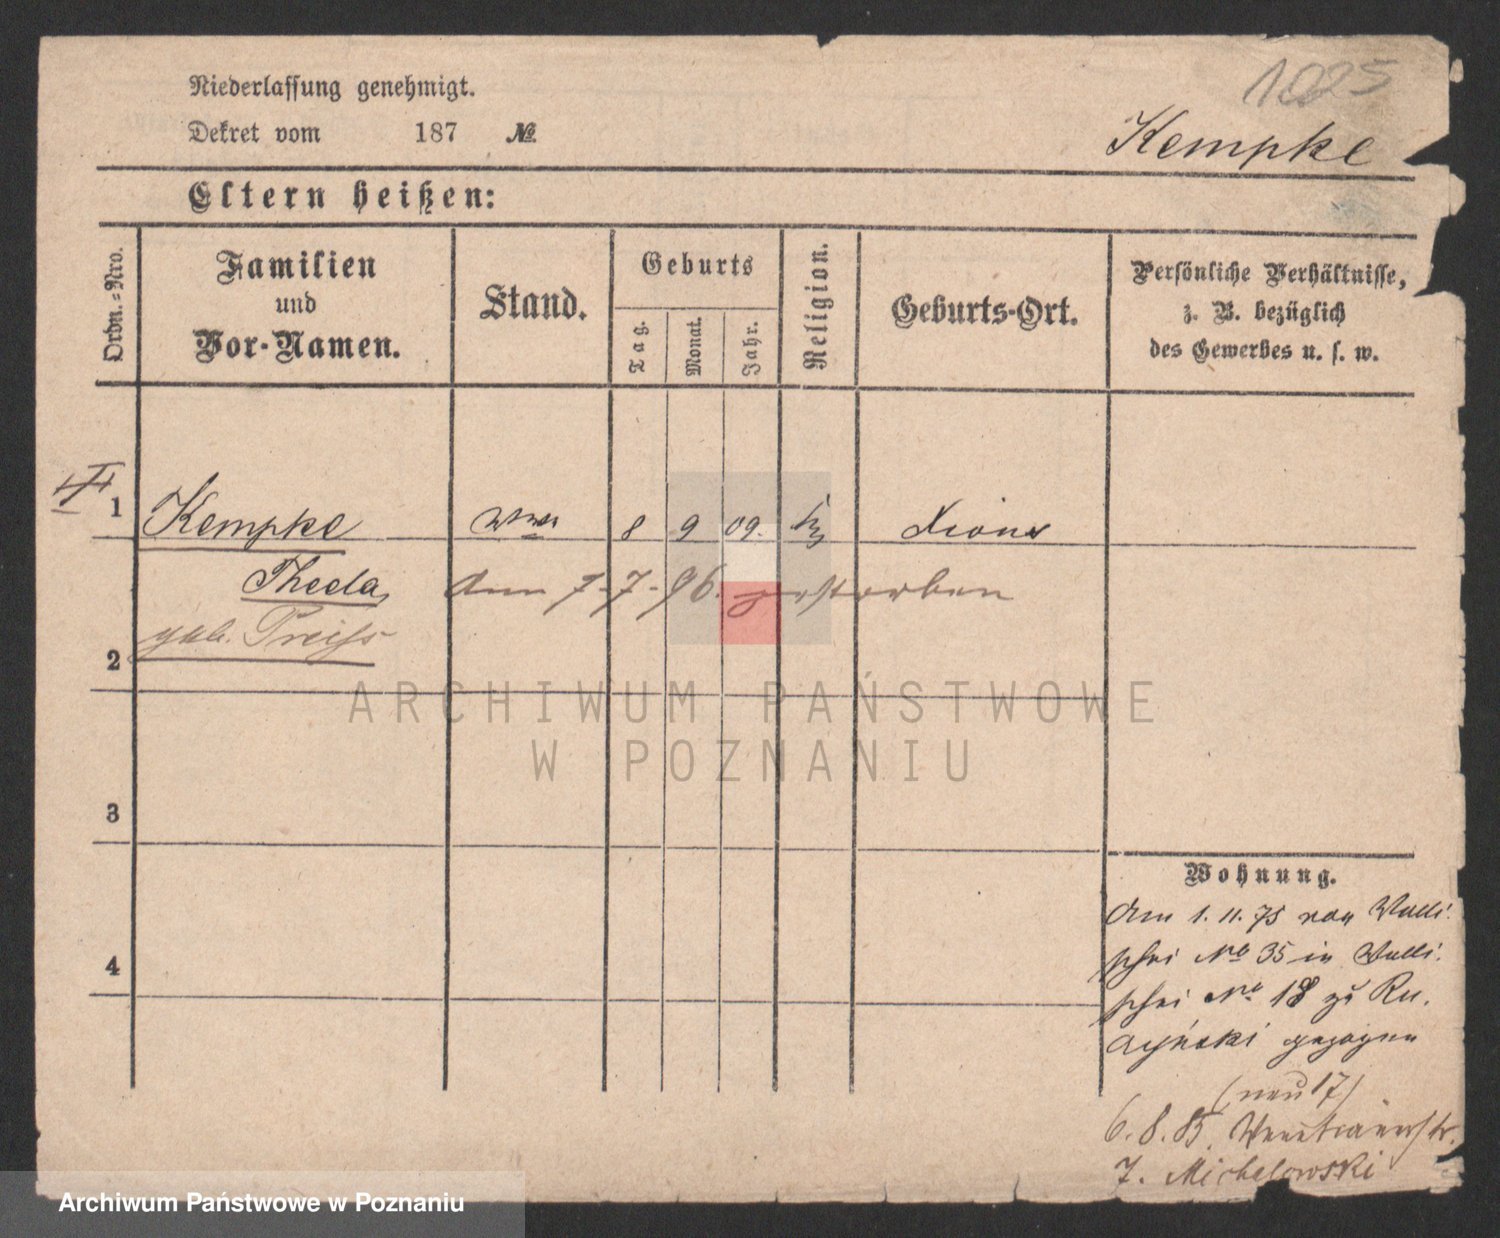 1025
Niederlassung genehmigt.
Dekret vom 187 №
Kempke
Eltern heißen:
Ordn.-Nro.
Familien
und
Vor-Namen.
Stand.
Geburts
Tag.
Monat.
Jahr.
Religion.
Geburts-Ort.
Persönliche Verhältnisse,
z. B. bezüglich
des Gewerbes u. s. w.
1 Kempke Wwe 8 9 09. Xions
Thecla, am 7.7.96. gestorben
geb. Preiss
2
3
4
Wohnung.
Am 1.11.75 von Walli-
schei № 35 in Walli-
schei № 18 zu Ru-
czyński gezogen
(neu 17)
6.8.85. Venetianerstr.
7. Michalowski
ARCHIWUM PAŃSTWOWE
W POZNANIU
Archiwum Państwowe w Poznaniu